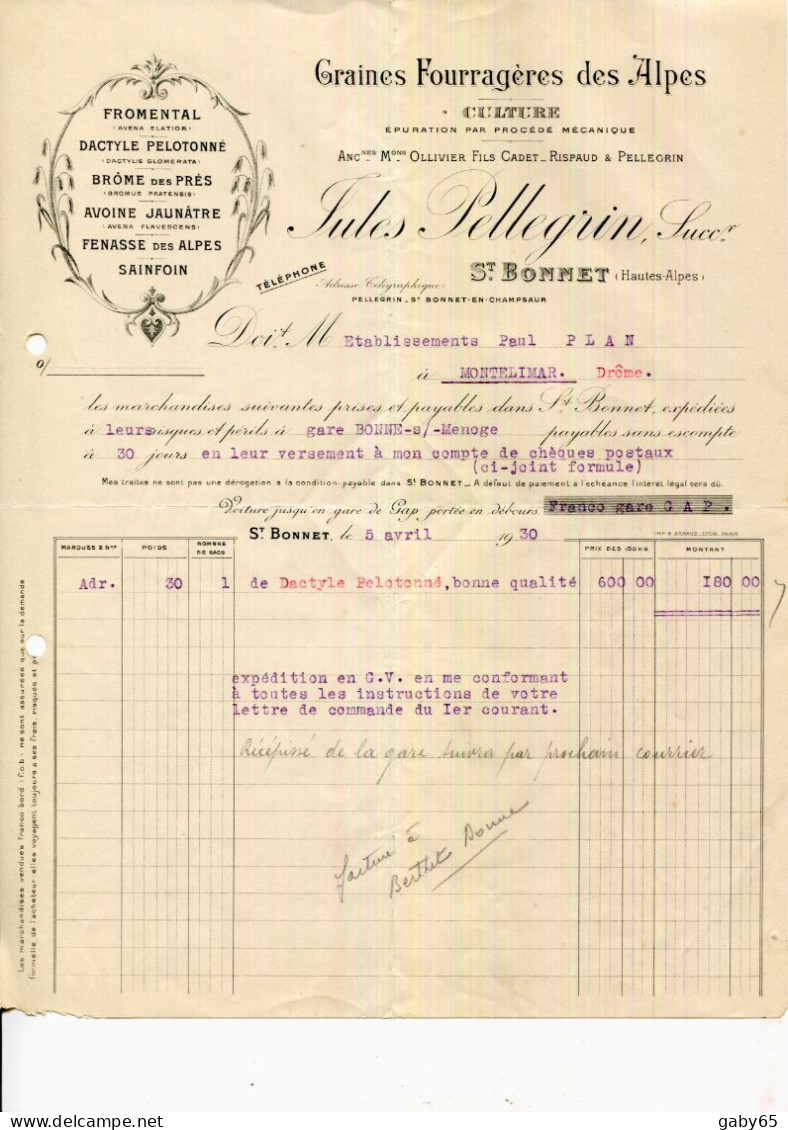 Graines Fourragères des Alpes
CULTURE
ÉPURATION PAR PROCÉDÉ MÉCANIQUE
ANC.NES M.ONS OLLIVIER FILS CADET_RISPAUD & PELLEGRIN
Jules Pellegrin, Succ.r
ST. BONNET (Hautes-Alpes)
FROMENTAL
(AVENA ELATIOR)
DACTYLE PELOTONNÉ
(DACTYLIS GLOMERATA)
BRÔME DES PRÉS
(BROMUS PRATENSIS)
AVOINE JAUNÂTRE
(AVENA FLAVESCENS)
FENASSE DES ALPES
SAINFOIN
TÉLÉPHONE
Adresse Télégraphique:
PELLEGRIN_ST BONNET-EN-CHAMPSAUR
Doit M Etablissements Paul PLAN
o/
à MONTELIMAR. Drôme.
les marchandises suivantes prises et payables dans St Bonnet, expédiées
à leurs risques et périls à gare BONNE-s/-Menoge payables sans escompte
à 30 jours en leur versement à mon compte de chèques postaux
(ci-joint formule)
Mes traites ne sont pas une dérogation à la condition payable dans ST BONNET_A défaut de paiement à l'échéance l'intérêt légal sera dû.
Voiture jusqu'en gare de Gap portée en débours Franco gare GAP.
ST. BONNET, le 5 avril 1930
MARQUES & Nos POIDS NOMBRE DE SACS PRIX DES 100 KG MONTANT
Adr. 30 1 de Dactyle Pelotonné, bonne qualité 600 00 I80 00
expédition en G.V. en me conformant
à toutes les instructions de votre
lettre de commande du Ier courant.
Récépissé de la gare suivra par prochain courrier
facturé à
Berthet Bonne
Les marchandises vendues franco bord (f.o.b.) ne sont assurées que sur la demande
formelle de l'acheteur elles voyagent toujours à ses frais, risques et
delcampe.net
gaby65